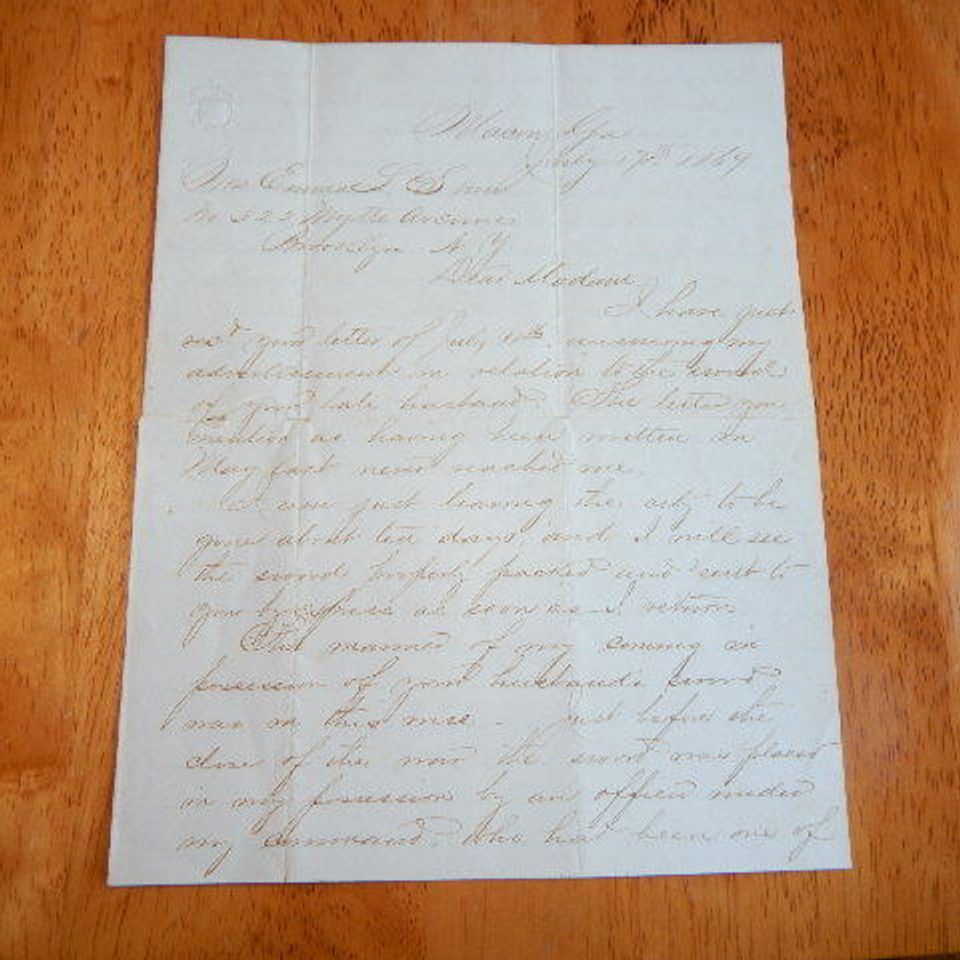 Macon Ga
July 17th 1869
Mrs Emma L
No 325 Myrtle Avenue
Brooklyn N. Y.
Dear Madam
I have just
recd your letter of July 10th, answering my
advertisement in relation to the sword
of your late husband. The letter you
mention as having been written in
May last never reached me.
I am just leaving the city to be
gone about ten days and I will see
the sword properly packed and sent to
you by express as soon as I return
The manner of my coming in
possession of your husband's sword
was in this wise. Just before the
close of the war the sword was placed
in my possession by an officer under
my command, who had been one of